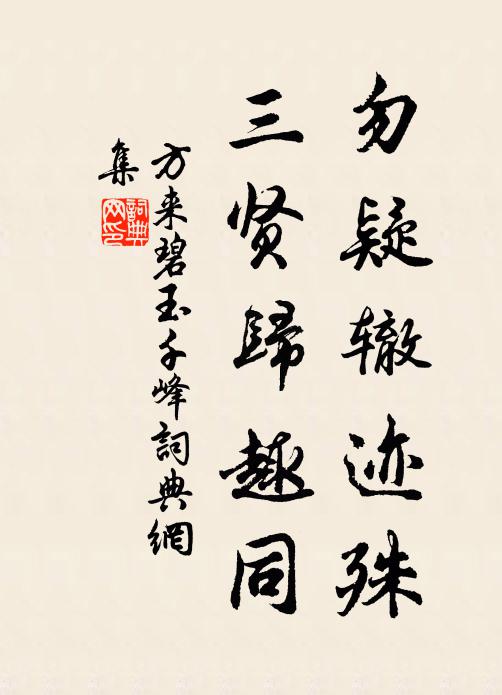 勿疑辙迹殊
三贤歸趣同
方来碧玉千峰詞典網
集
詞典
网印